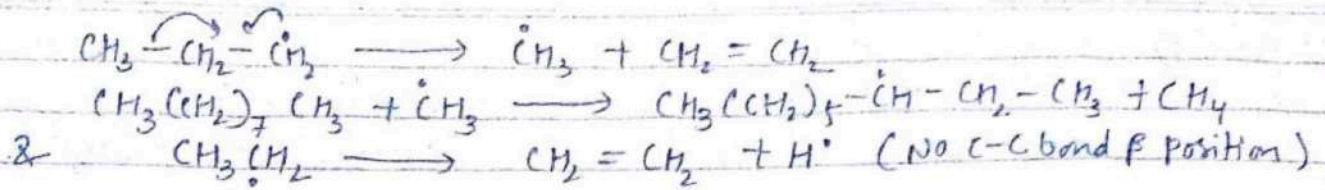 CH₃ - CH₂ - ĊH₂ ⟶ ĊH₃ + CH₂ = CH₂
CH₃(CH₂)₇ CH₃ + ĊH₃ ⟶ CH₃(CH₂)₅ - ĊH - CH₂ - CH₃ + CH₄
& CH₃ĊH₂ ⟶ CH₂ = CH₂ + H• (No C-C bond β position)